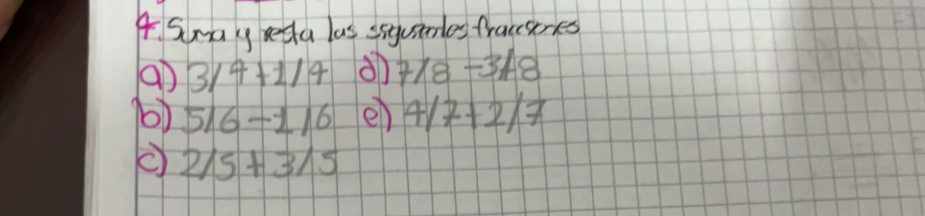 4. Suma y resta las siguientes fracciones
a) 3/4+1/4 d) 7/8-3/8
b) 5/6-1/6 e) 4/7+2/7
c) 2/5+3/5